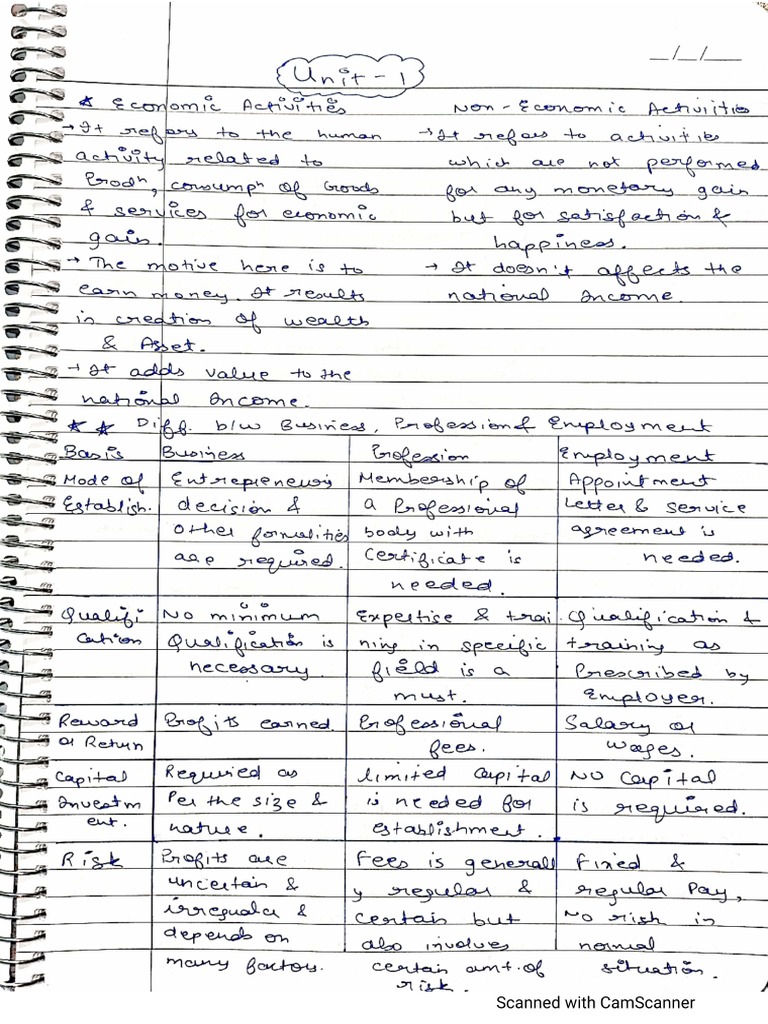 __/__/__
Unit - 1
★ Economic Activities
→ It refers to the human
activity related to
Prodⁿ, consumpⁿ of Goods
& services for economic
gain.
→ The motive here is to
earn money. It results
in creation of wealth
& Asset.
→ It adds value to the
national Income.
Non-Economic Activities
→ It refers to activities
which are not performed
for any monetary gain
but for satisfaction &
happiness.
→ It doesn't affects the
national Income.
★ ★ Diff. b/w Business, Profession & Employment
Basis Business Profession Employment
Mode of Entrepreneur's Membership of Appointment
Establish. decision & a Professional Letter & service
other formalities body with agreement is
are required. Certificate is needed.
needed.
Qualifi No minimum Expertise & trai Qualification &
cation Qualification is ning in specific training as
necessary. field is a Prescribed by
must. Employer.
Reward Profits earned. Professional Salary or
or Return fees. wages.
Capital Required as limited capital NO Capital
Investm Per the size & is needed for is required.
ent. nature. establishment.
Risk Profits are Fees is generall Fixed &
uncertain & y regular & regular Pay,
irregular & certain but No risk in
depends on also involves normal
many factors. certain amt. of situation.
risk.
Scanned with CamScanner